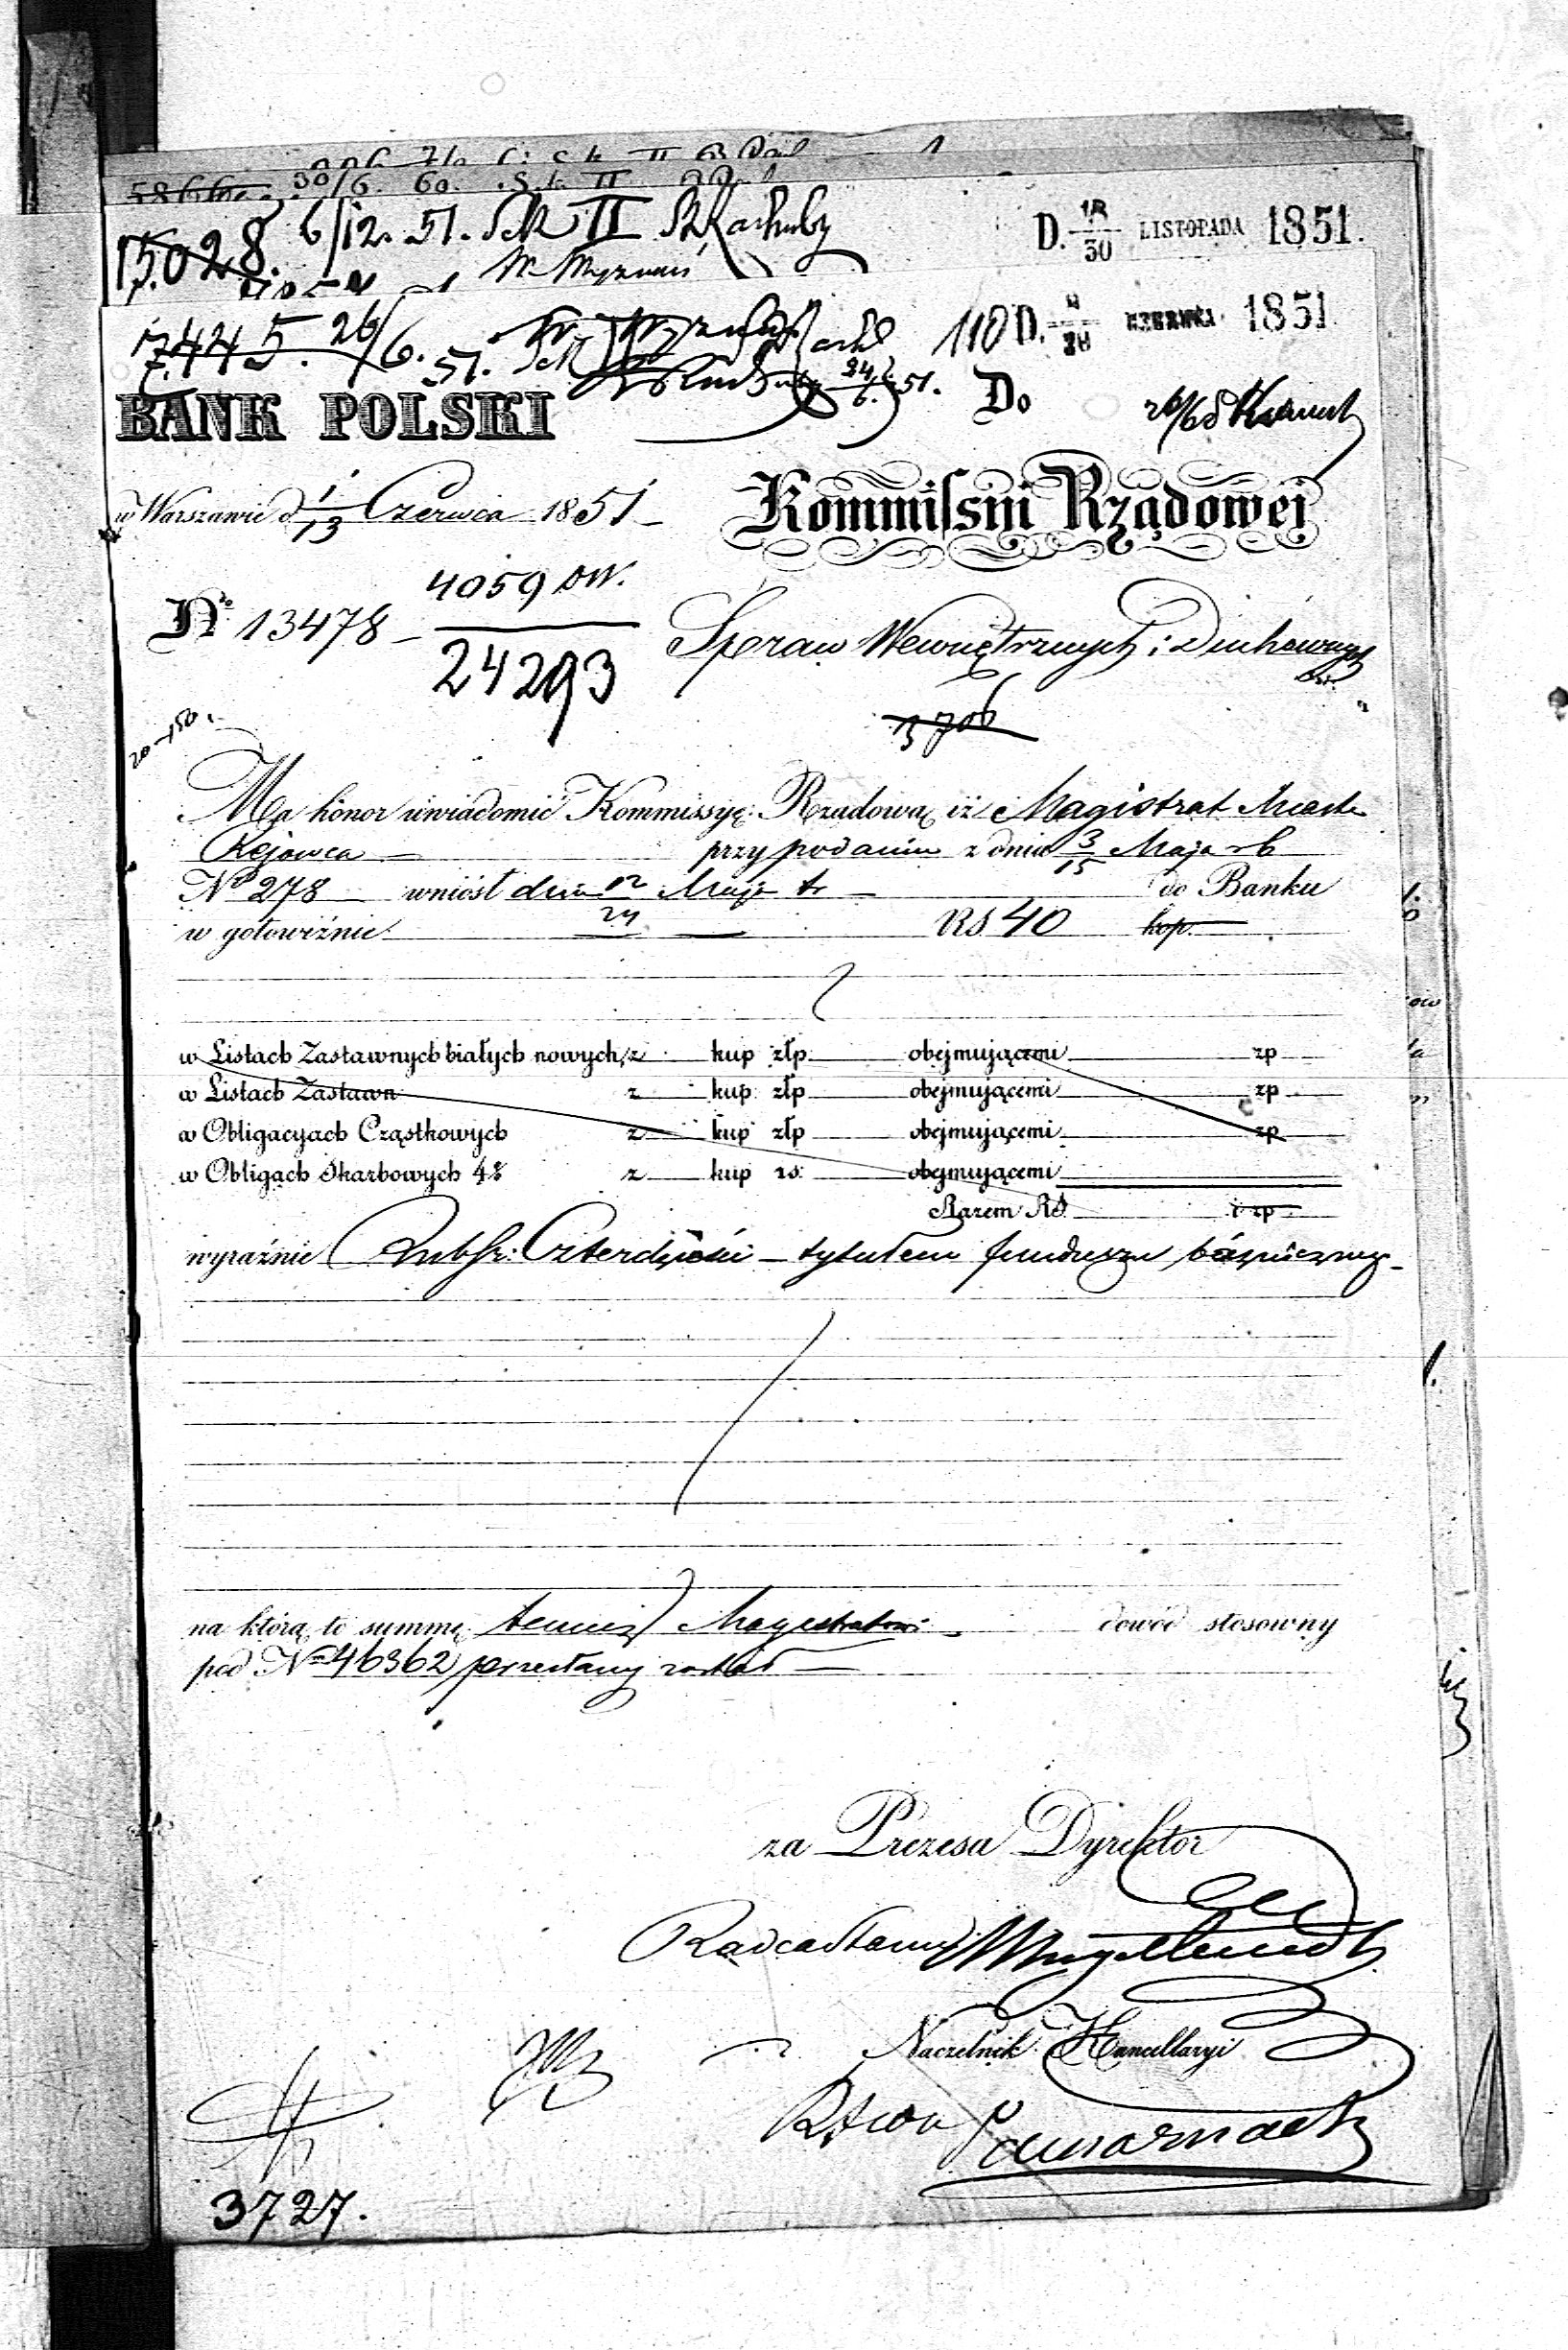 6/12. 51.
15028.
D. 18/30 LISTOPADA 1851.
7445. 26/6. 51.
D. CZERWCA 1851
BANK POLSKI
Do
w Warszawie d. 1/13 Czerwca 1851
Kommissyi Rządowej
4059 DW.
No 13478
24293
Spraw Wewnętrznych i Duchownych
20-150.
Ma honor uwiadomić Kommissyę Rządową iż Magistrat Miasta
Rejowca przy podaniu z dnia 3/15 Maja rb
No 278 wniósł dnia 12/24 Maja tr do Banku
w gotowiźnie RS 40 kop.
w Listach Zastawnych białych nowych z kup złp. obejmującemi zp
w Listach Zastawn z kup złp obejmującemi zp
w Obligacyach Cząstkowych z kup złp obejmującemi zp
w Obligach Skarbowych 4% z kup rs. obejmującemi
Razem RS. i zp
wyraźnie Rubsr: Czterdzieści – tytułem funduszu
na którą to summę temuż Magistratowi dowód stosowny
pod No 46362 przesłany został
za Prezesa Dyrektor
Radca Stanu
Naczelnik Kancellaryi
3727.